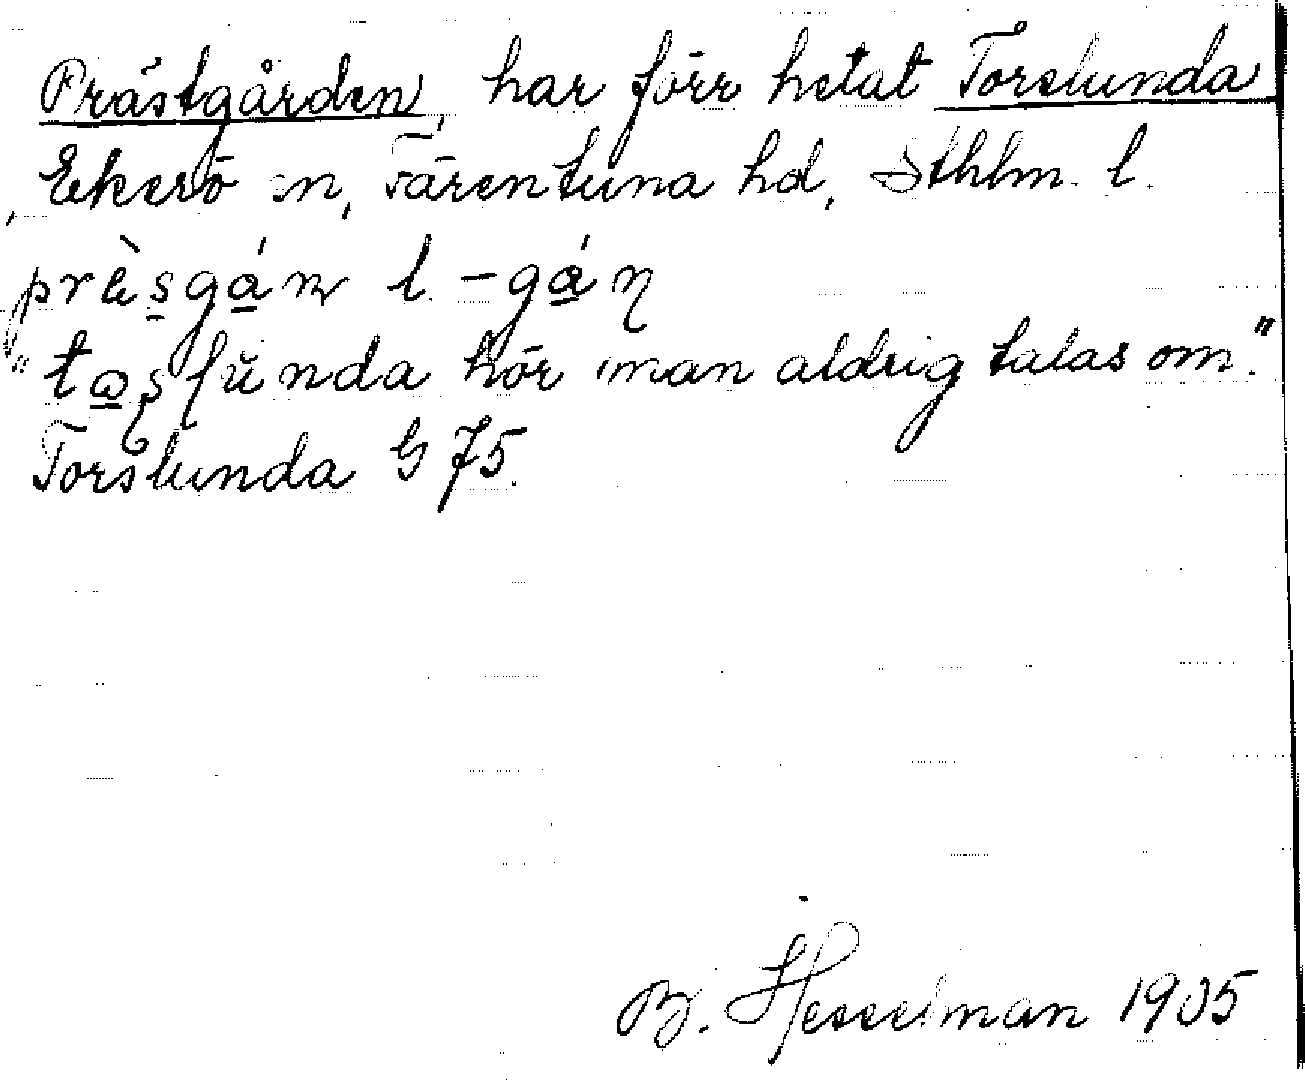 Prästgården, har förr hetat Torslunda
Ekerö sn, Färentuna hd, Sthlm. l.
prèsgán l. -gán
"taslúnda hör man aldrig talas om."
Torslunda G 75.
Bj. Hesselman 1905